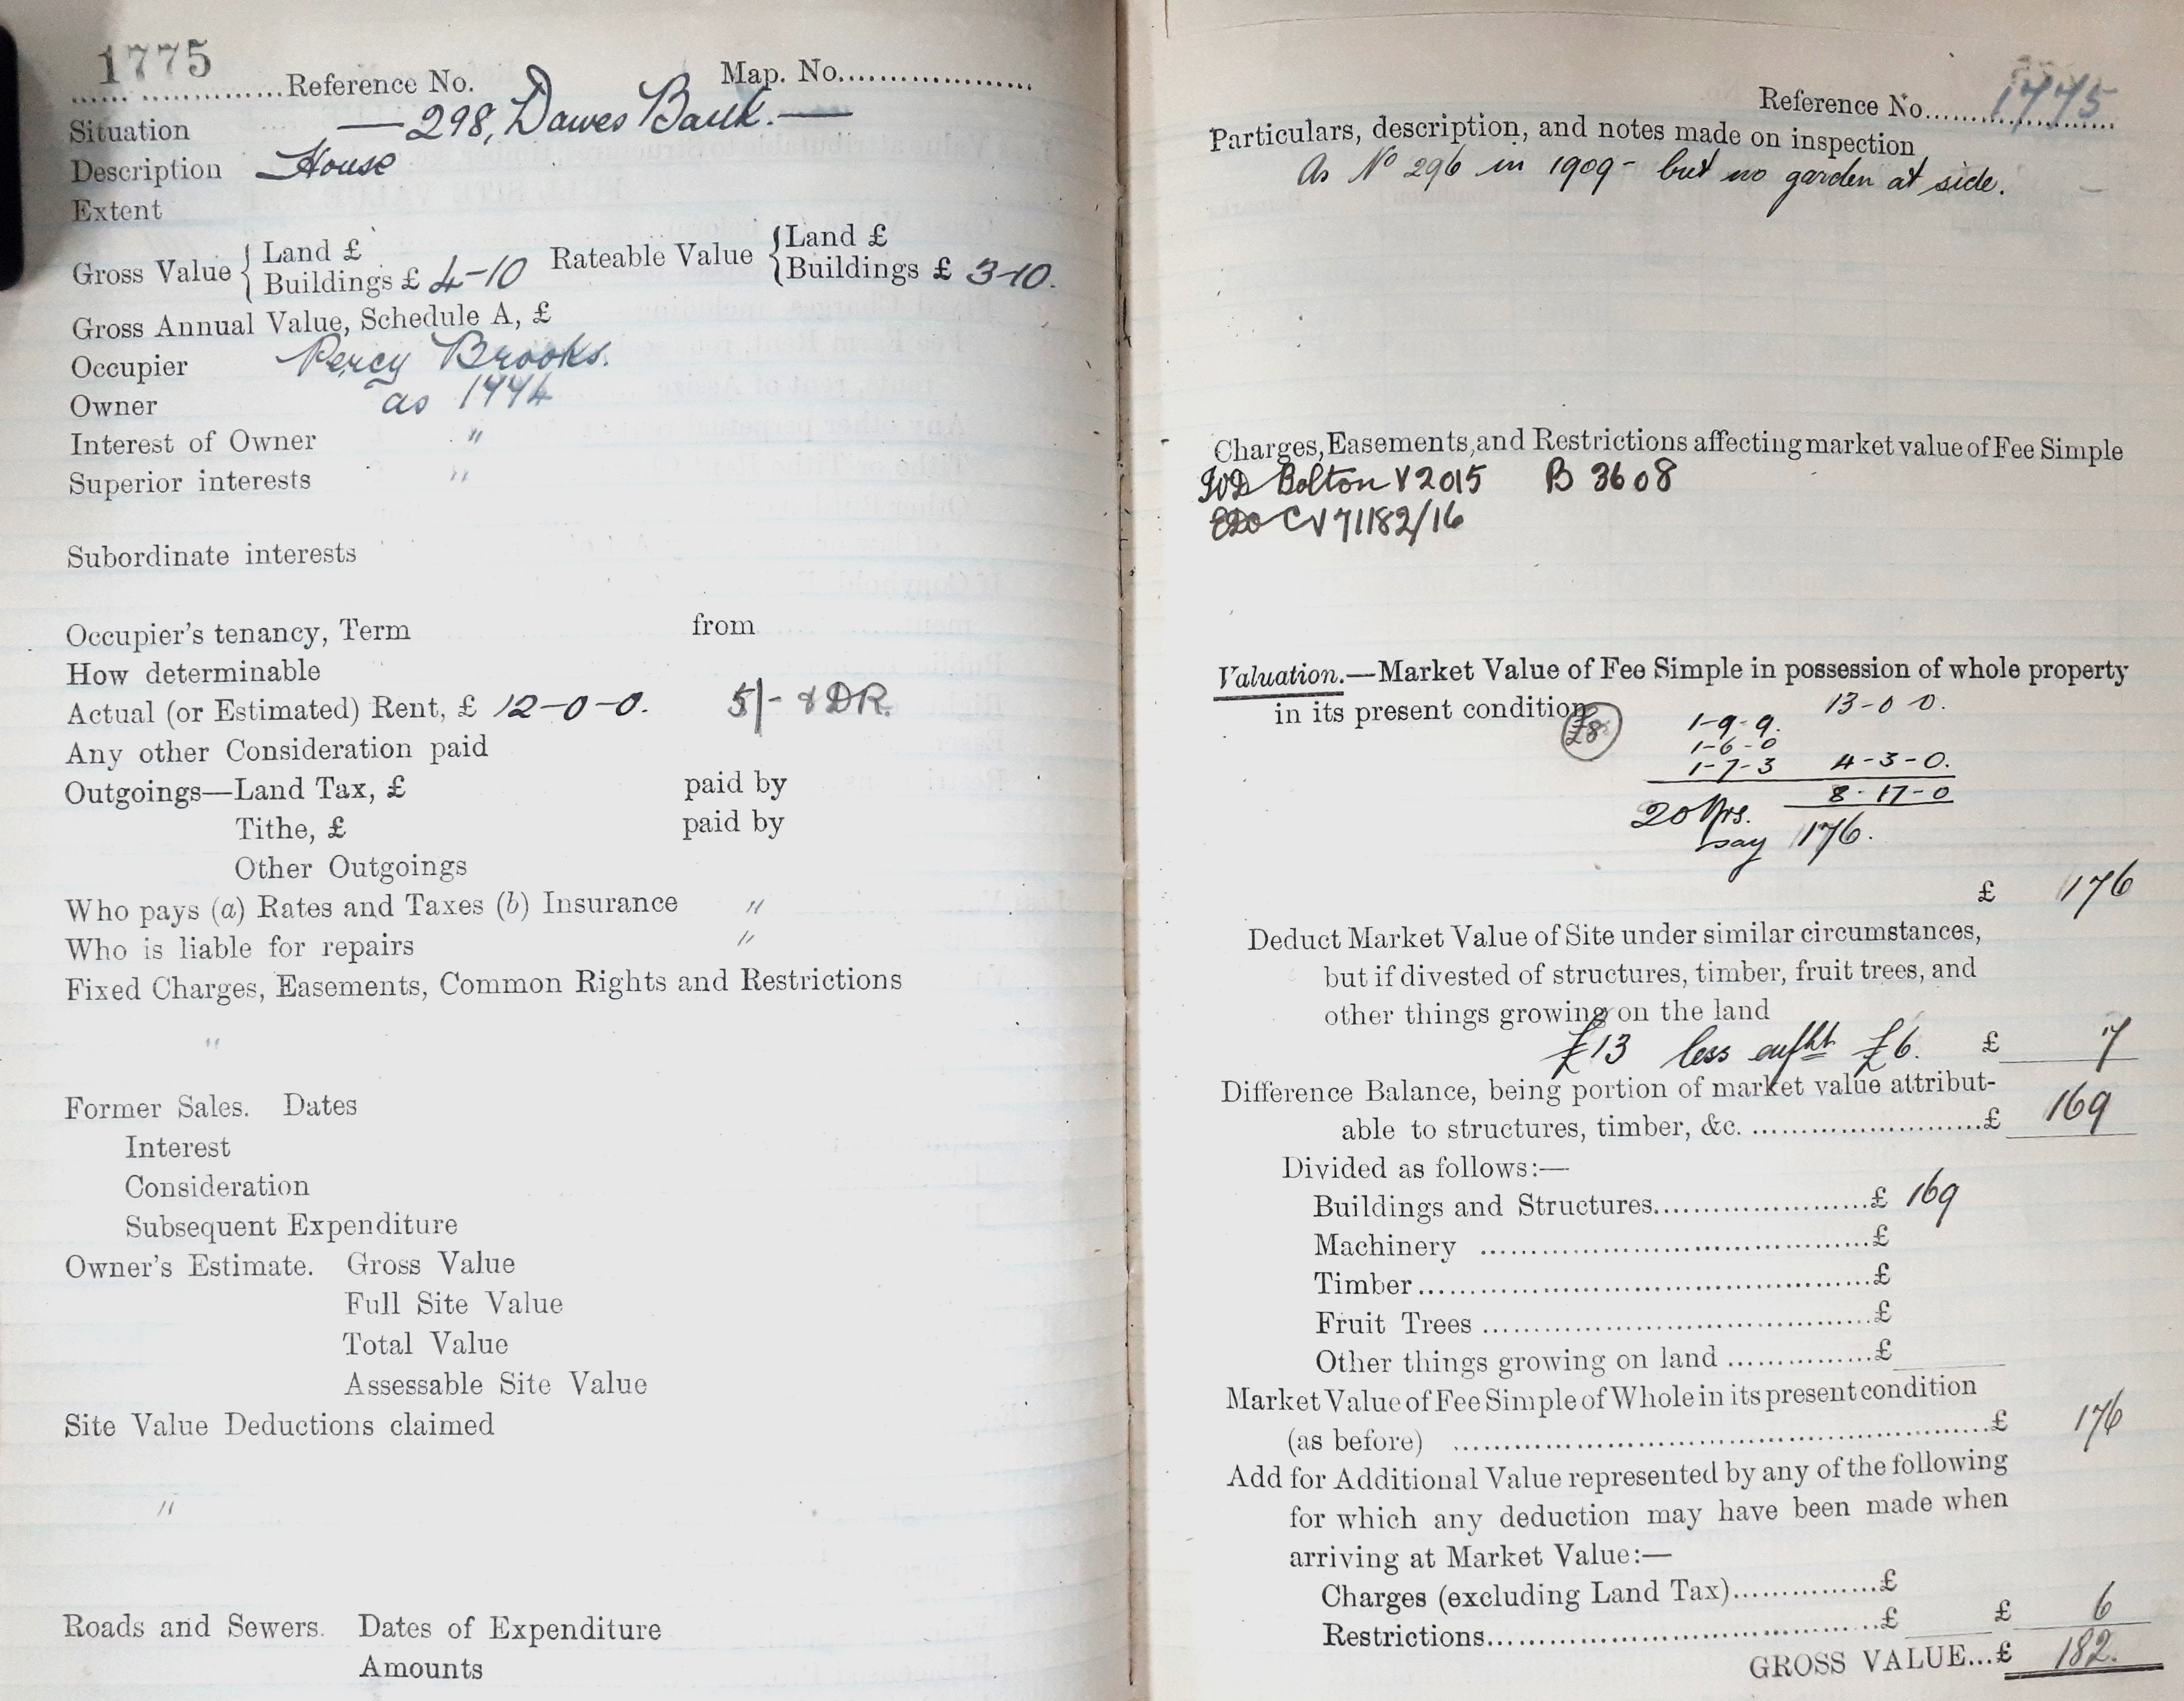 1775
Reference No. Map. No.
Situation — 298, Dawes Bank. —
Description House
Extent
Gross Value { Land £ Buildings £ 4-10 Rateable Value { Land £ Buildings £ 3-10.
Gross Annual Value, Schedule A, £
Occupier Percy Brooks.
Owner as 1774
Interest of Owner "
Superior interests "
Subordinate interests
Occupier's tenancy, Term from
How determinable
Actual (or Estimated) Rent, £ 12-0-0. 5/- & DR.
Any other Consideration paid
Outgoings—Land Tax, £ paid by
Tithe, £ paid by
Other Outgoings
Who pays (a) Rates and Taxes (b) Insurance "
Who is liable for repairs "
Fixed Charges, Easements, Common Rights and Restrictions
"
Former Sales. Dates
Interest
Consideration
Subsequent Expenditure
Owner's Estimate. Gross Value
Full Site Value
Total Value
Assessable Site Value
Site Value Deductions claimed
"
Roads and Sewers. Dates of Expenditure
Amounts
Reference No. 1775
Particulars, description, and notes made on inspection
As No 296 in 1909 - but no garden at side.
Charges, Easements, and Restrictions affecting market value of Fee Simple
Bolton V 2015 B 3608
CV 71182/16
Valuation.—Market Value of Fee Simple in possession of whole property
in its present condition
£8 1-9-9. 13-0 0.
1-6-0
1-7-3 4-3-0.
8-17-0
20 Yrs.
Say 176.
£ 176
Deduct Market Value of Site under similar circumstances,
but if divested of structures, timber, fruit trees, and
other things growing on the land
£13 less £6. £ 7
Difference Balance, being portion of market value attribut-
able to structures, timber, &c. £ 169
Divided as follows:—
Buildings and Structures £ 169
Machinery £
Timber £
Fruit Trees £
Other things growing on land £
Market Value of Fee Simple of Whole in its present condition
(as before) £ 176
Add for Additional Value represented by any of the following
for which any deduction may have been made when
arriving at Market Value:—
Charges (excluding Land Tax) £
Restrictions £ £ 6
GROSS VALUE...£ 182.